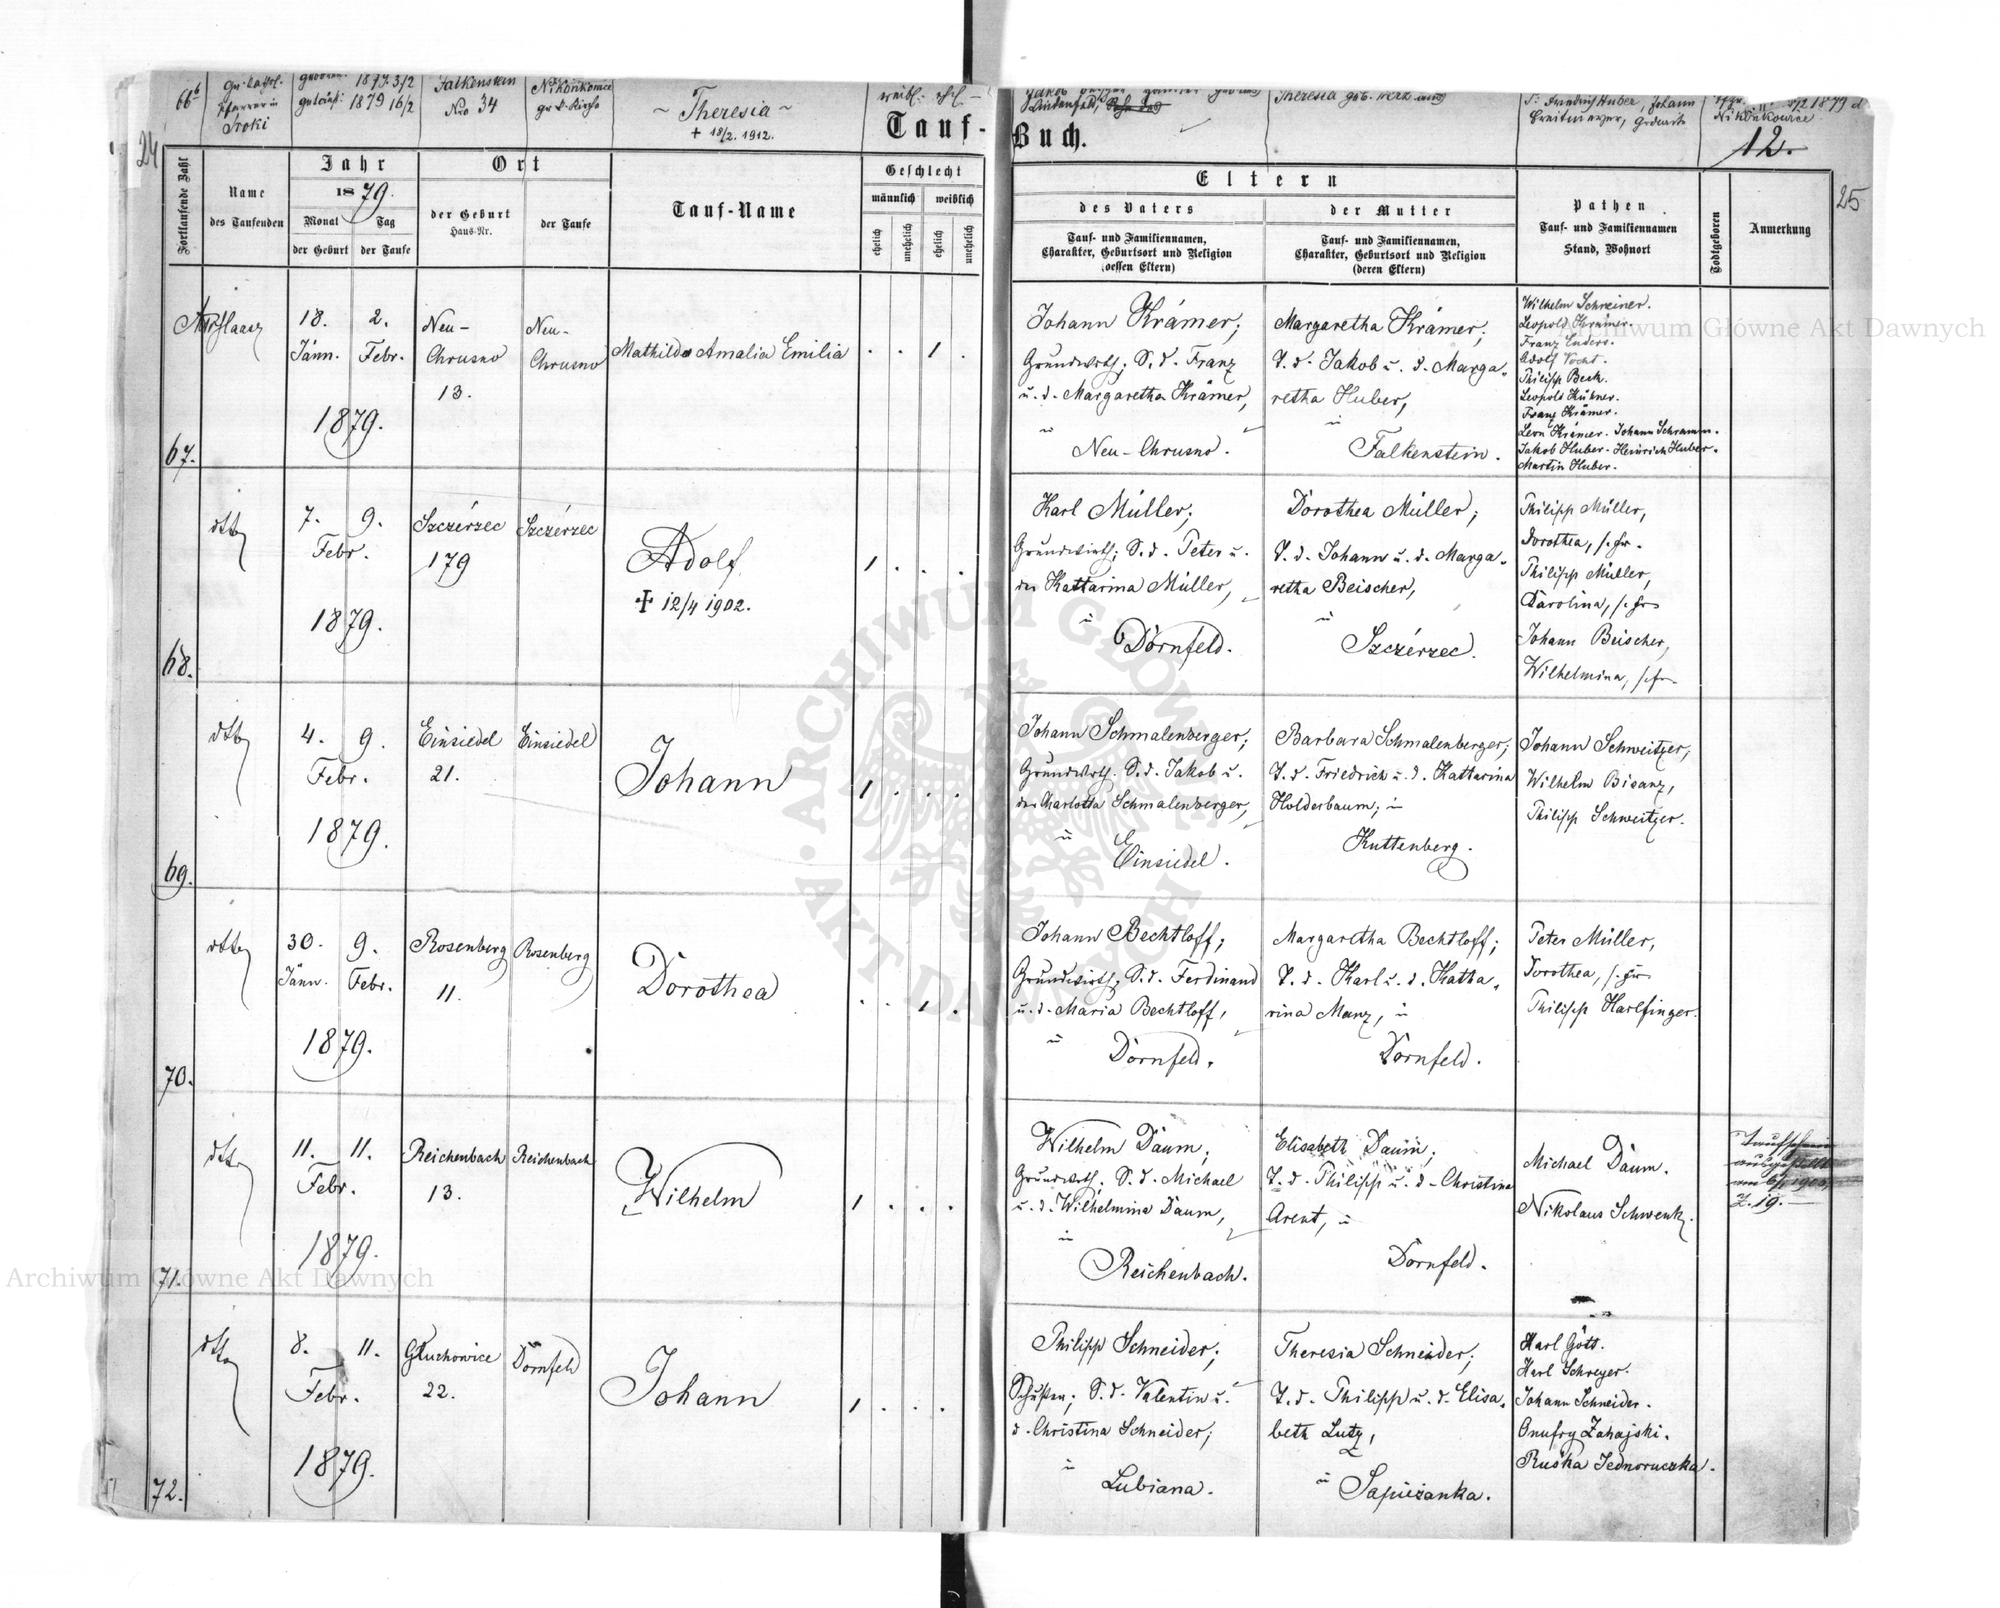 66b
gr. kathol.
Pfarrer in
Troki
geboren: 1879 3/2
getauft: 1879 16/2
Falkenstein
Nro 34
Nikonkowice
gr. k. Kirche
~ Theresia ~
+ 18/2. 1912.
weibl. ehl. –
Lindenfeld,
Theresia geb.
Friedrich Huber, Johann
Breitmayer,
1879
Nikonkowice
24
Tauf-
Buch.
12.
25
Fortlaufende Zahl
Name
des Taufenden
Jahr
1879.
Monat Tag
der Geburt der Taufe
Ort
der Geburt
Haus-Nr.
der Taufe
Tauf-Name
Geschlecht
männlich weiblich
ehelich unehelich ehelich unehelich
Eltern
des Vaters
Tauf- und Familiennamen,
Charakter, Geburtsort und Religion
(dessen Eltern)
der Mutter
Tauf- und Familiennamen,
Charakter, Geburtsort und Religion
(deren Eltern)
Pathen
Tauf- und Familiennamen
Stand, Wohnort
Todtgeboren
Anmerkung
67.
18. 2.
Jänn. Febr.
1879.
Neu-
Chrusno
13.
Neu-
Chrusno
Mathilde Amalia Emilia
. . 1 .
Johann Krämer;
Grundwirth; S. d. Franz
u. d. Margaretha Krämer,
in
Neu-Chrusno.
Margaretha Krämer;
T. d. Jakob u. d. Marga-
retha Huber,
in
Falkenstein.
Wilhelm Schreiner.
Leopold Krämer.
Franz Enders.
Adolf Vocht.
Philipp Beck.
Leopold Hübner.
Franz Krämer.
Leon Krämer. Johann Schramm.
Jakob Huber. Heinrich Huber.
Martin Huber.
68.
dtto
7. 9.
Febr.
1879.
Szczérzec
179
Szczérzec
Adolf
+ 12/4 1902.
1 . . .
Karl Müller;
Grundwirth; S. d. Peter u.
der Kattarina Müller,
in
Dornfeld.
Dorothea Müller;
T. d. Johann u. d. Marga-
retha Beischer,
in
Szczérzec.
Philipp Müller,
Dorothea, s. Fr.
Philipp Müller,
Carolina, s. Fr.
Johann Beischer,
Wilhelmina, s. Fr.
69.
dtto
4. 9.
Febr.
1879.
Einsiedel
21.
Einsiedel
Johann
1 . . .
Johann Schmalenberger;
Grundwirth. S. d. Jakob u.
der Charlotta Schmalenberger,
in
Einsiedel.
Barbara Schmalenberger;
T. d. Friedrich u. d. Kattarina
Holderbaum; in
Kuttenberg.
Johann Schweitzer,
Wilhelm Bisanz,
Philipp Schweitzer.
70.
dtto
30. 9.
Jänn. Febr.
1879.
Rosenberg
11.
Rosenberg
Dorothea
. . 1 .
Johann Bechtloff;
Grundwirth, S. d. Ferdinand
u. d. Maria Bechtloff,
in
Dornfeld.
Margaretha Bechtloff;
T. d. Karl u. d. Katha-
rina Manz, in
Dornfeld.
Peter Müller,
Dorothea, s. Fr.
Philipp Harlfinger.
71.
dtto
11. 11.
Febr.
1879.
Reichenbach
13.
Reichenbach
Wilhelm
1 . . .
Wilhelm Daum;
Grundwirth. S. d. Michael
u. d. Wilhelmina Daum,
in
Reichenbach.
Elisabeth Daum;
T. d. Philipp u. d. Christina
Arent, in
Dornfeld.
Michael Daum.
Nikolaus Schwenk.
Taufschein
ausgestellt
Z. 19.
72.
dtto
8. 11.
Febr.
1879.
Gluchowice
22.
Dornfeld
Johann
1 . . .
Philipp Schneider;
Schuster; S. d. Valentin u.
d. Christina Schneider;
in
Lubiana.
Theresia Schneider;
T. d. Philipp u. d. Elisa-
beth Lutz,
in
Sapiezanka.
Karl Gött.
Karl Schreyer.
Johann Schneider.
Onufry Zahajski.
Ruśka Jednoruczka.
Archiwum Główne Akt Dawnych
Archiwum Główne Akt Dawnych
ARCHIWUM GŁÓWNE AKT DAWNYCH